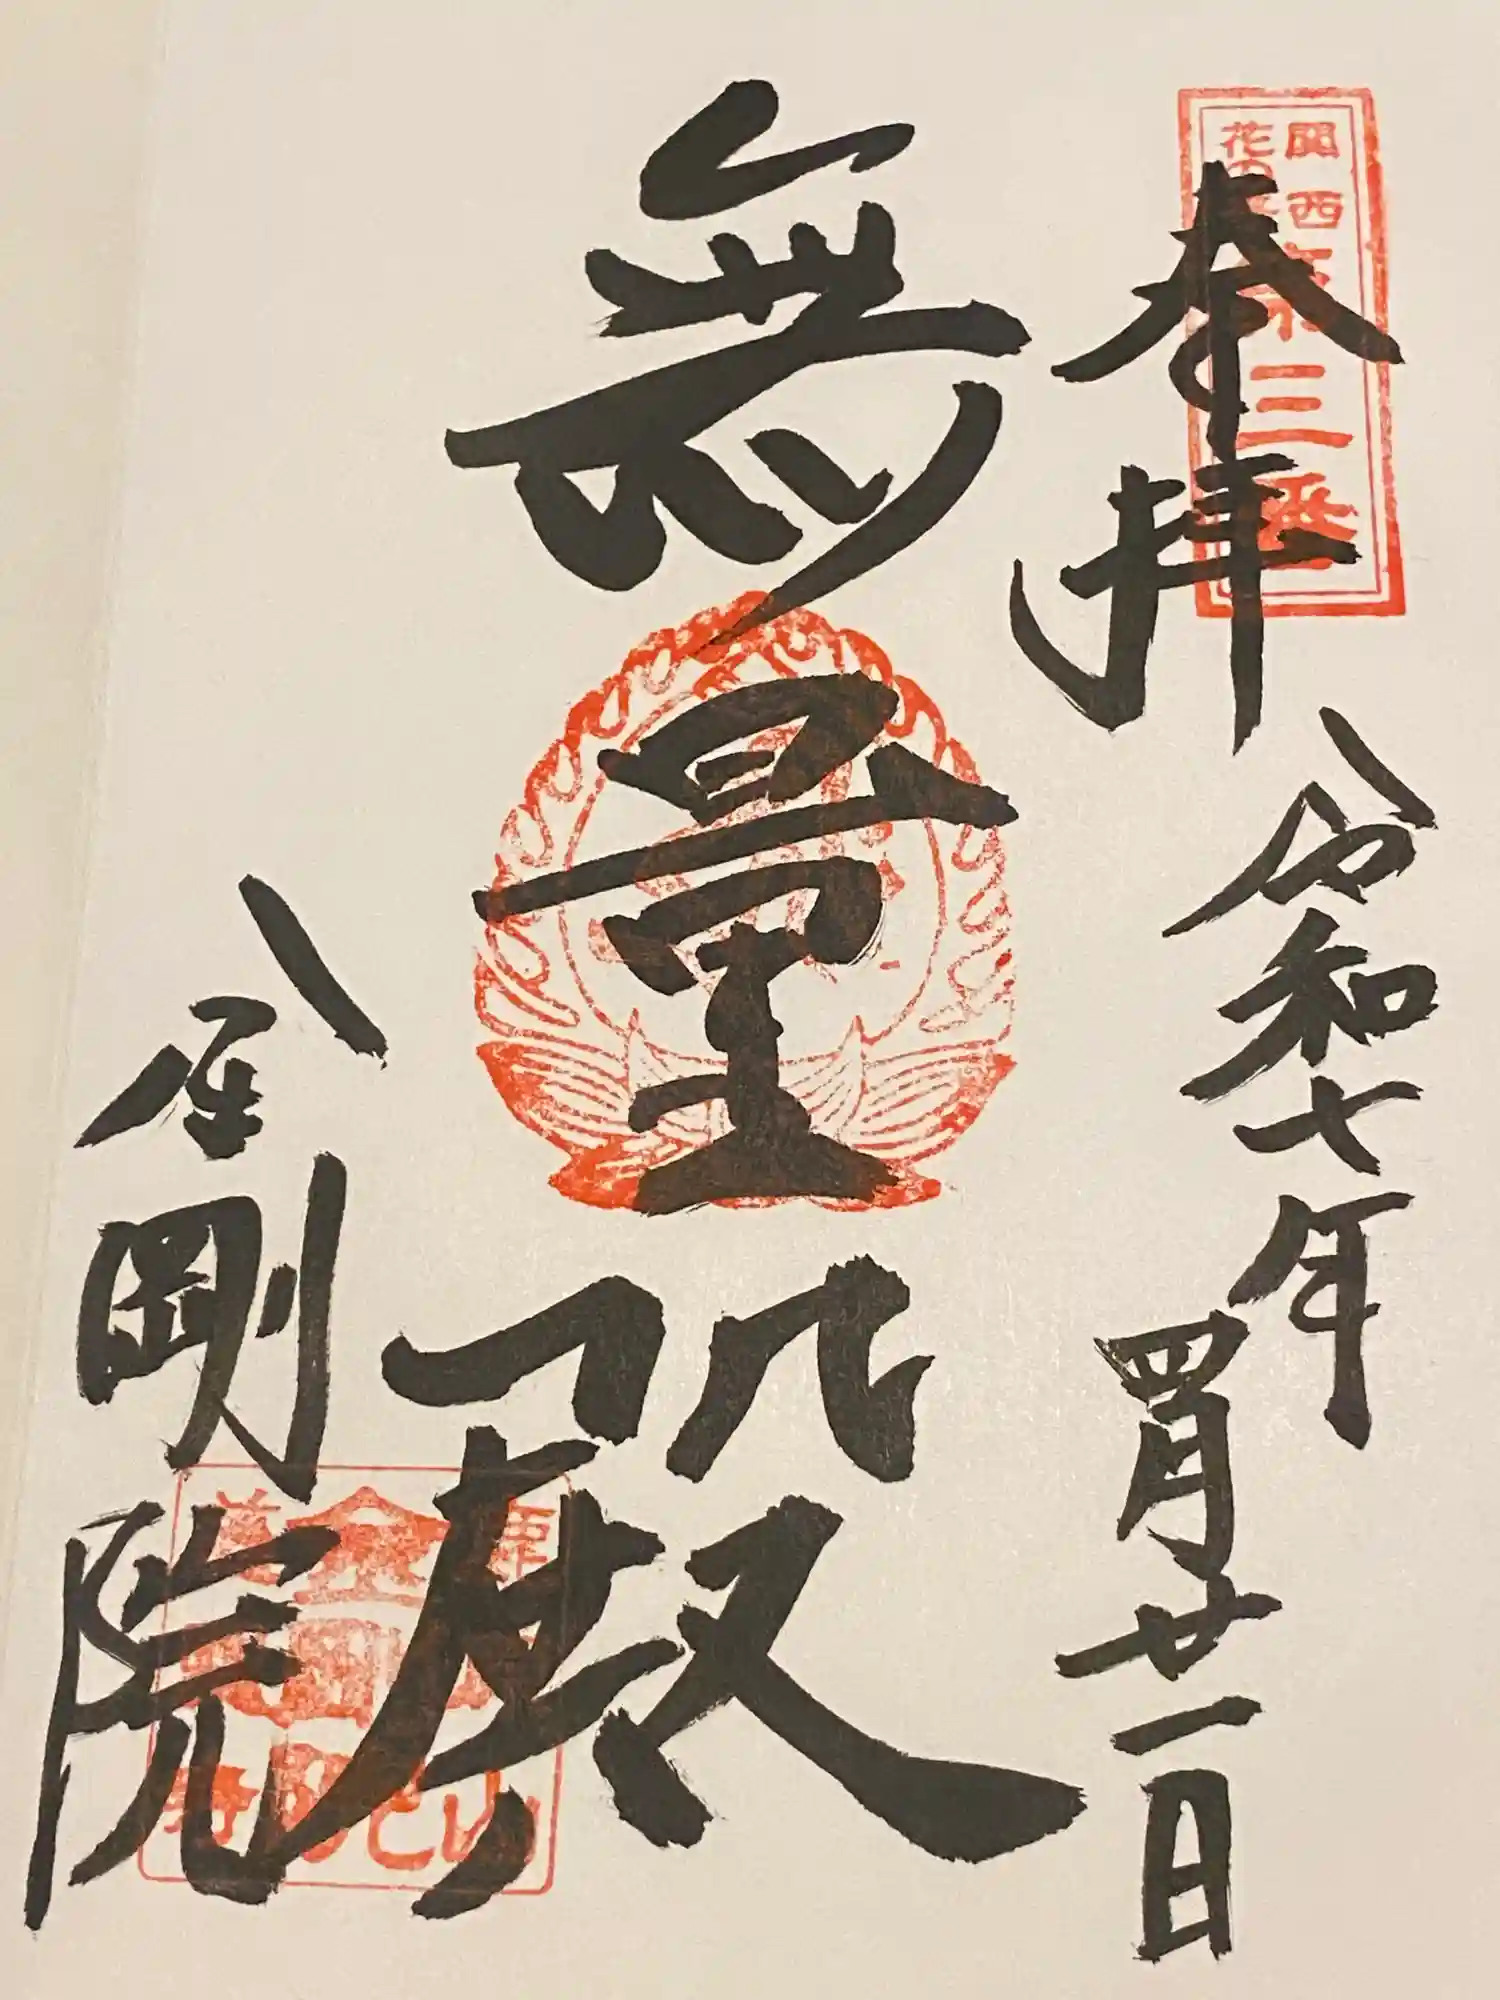 奉拝
令和七年四月廿一日
関西
花の寺
第三番
無量殿
金剛院